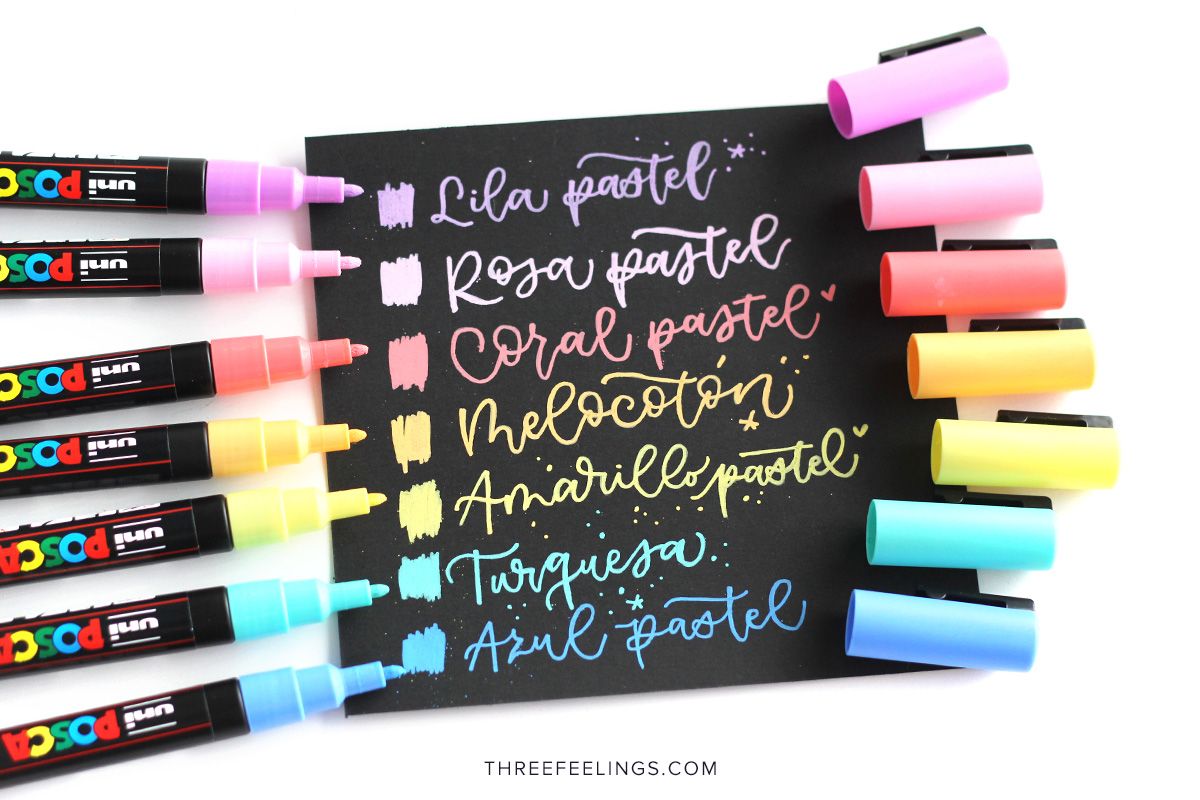 uni POSCA
Lila pastel
uni POSCA
Rosa pastel
uni POSCA
Coral pastel
uni POSCA
Melocotón
uni POSCA
Amarillo pastel
uni POSCA
Turquesa
uni POSCA
Azul pastel
THREEFEELINGS.COM